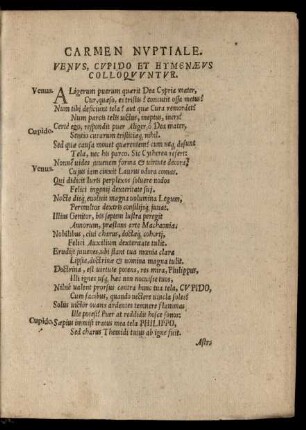 CARMEN NVPTIALE.
VENVS, CVPIDO ET HYMENÆVS
COLLOQVVNTVR.
Venus. ALigerum puerum quærit Dea Cypria mater,
Cur, quæso, es tristis? concutit ossa metus?
Num tibi deficiunt tela? aut quæ Cura remordet?
Num parcis telis victus, ineptus, iners?
Cupido. Certè ego, respondit puer Aliger, ô Dea mater,
Sentio curarum tristitiæq; nihil.
Sed quæ causa movet quærentem? cum neq; desunt
Tela, nec his parco. Sic Cytherea refert:
Venus. Nonne vides juvenem forma & virtute decora?
Cujus jam cinxit Laurus odora comas.
Qui didicit Iuris perplexos solvere nodos
Felici ingenij dexteritate sui.
Nocte dieq; evoluit magna volumina Legum,
Permultos dextris consilijsq; juvat.
Illius Genitor, bis septem lustra peregit
Annorum, præstans arte Machaonia;
Nobilibus, civi charus, doctisq; cohorti,
Felici Auxilium dexteritate tulit.
Erudijt juvenes, ubi stant tua mœnia clara
Lipsia, doctrinæ & nomina magna tulit.
Doctrina, est virtute potens, ros mira, Philippus,
Illi ignes usq; hæc non nocuisse tuos,
Nihil valent prorsus contra hunc tua tela, CVPIDO,
Cum facibus, quondã victore vincla soles?
Solus victor ovans ardentes temnere flammas,
Ille potest? Puer at reddidit hosce sonos:
Cupido. Sæpius immisi travus mea tela PHILIPPO,
Sed charus Themidi tutus ab igne fuit.
Astra